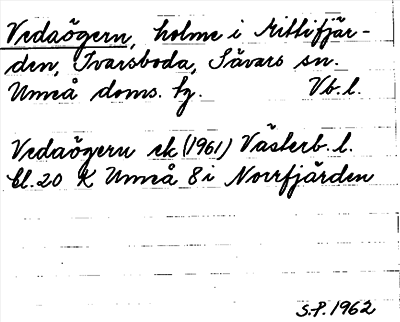 Vedaögern, holme i Mittifjär-
den, Ivarsboda, Sävars sn.
Umeå doms. tg. Vb.l.
Vedaögern ek (1961) Västerb. l.
bl. 20 K Umeå 8i Norrfjärden
S.P. 1962